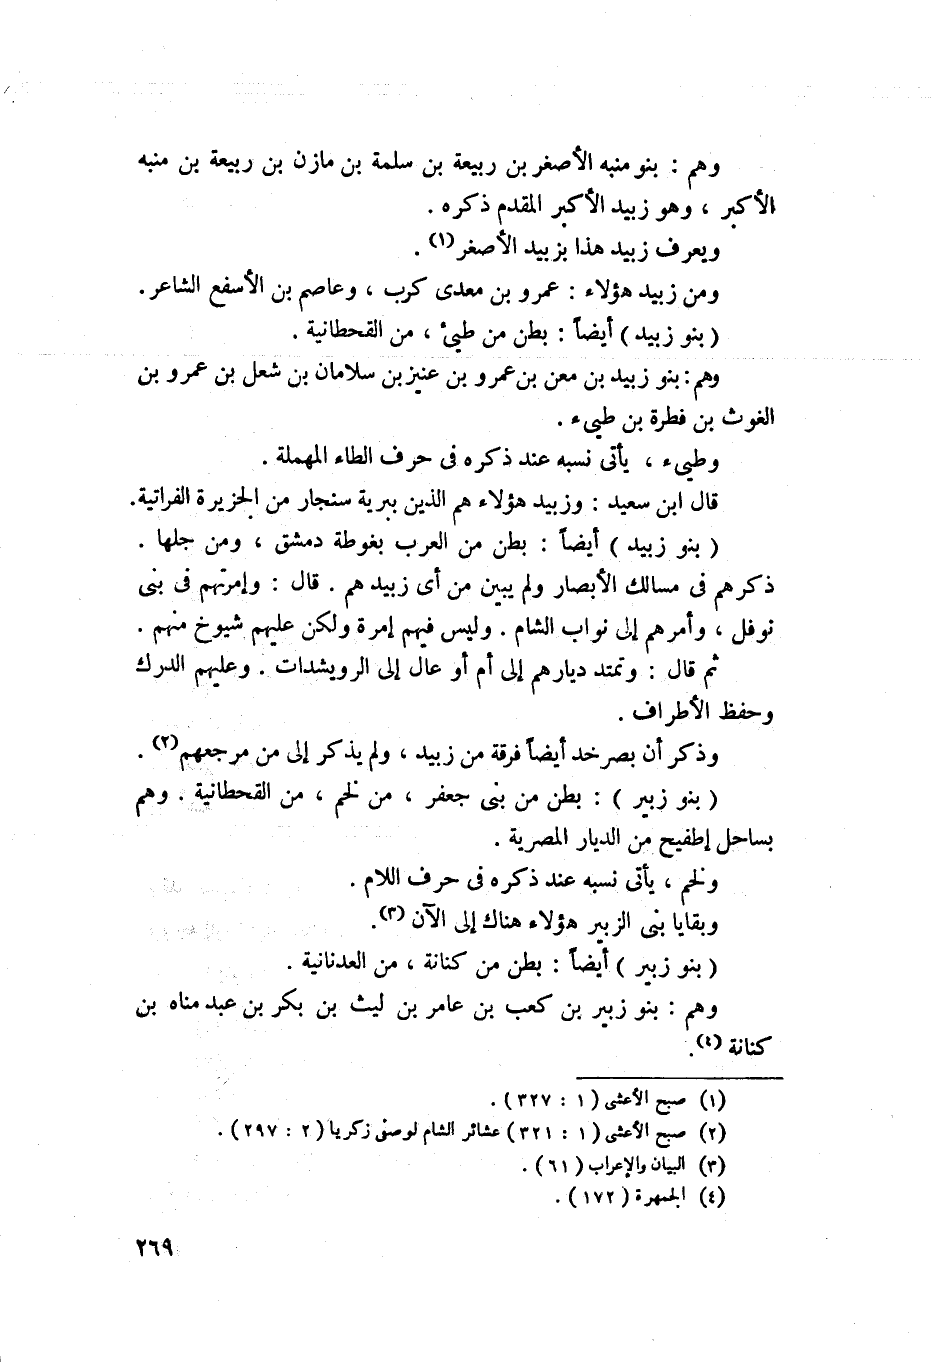 وهم : بنو منبه الأصغر بن ربيعة بن سلمة بن مازن بن ربيعة بن منبه
الأكبر ، وهو زبيد الأكبر المقدم ذكره .
ويعرف زبيد هذا بزبيد الأصغر (١) .
ومن زبيد هؤلاء : عمرو بن معدى كرب ، وعاصم بن الأسفع الشاعر .
( بنو زبيد ) أيضاً : بطن من طيئ ، من القحطانية .
وهم : بنو زبيد بن معن بن عمرو بن عنيز بن سلامان بن شعل بن عمرو بن
الغوث بن فطرة بن طيىء .
وطيىء ، يأتى نسبه عند ذكره فى حرف الطاء المهملة .
قال ابن سعيد : وزبيد هؤلاء هم الذين ببرية سنجار من الجزيرة الفراتية .
( بنو زبيد ) أيضاً : بطن من العرب بغوطة دمشق ، ومن جلها .
ذكرهم فى مسالك الأبصار ولم يبين من أى زبيد هم . قال : وإمرتهم فى بنى
نوفل ، وأمرهم إلى نواب الشام . وليس فيهم إمرة ولكن عليهم شيوخ منهم .
ثم قال : وتمتد ديارهم إلى أم أو عال إلى الرويشدات . وعليهم الدرك
وحفظ الأطراف .
وذكر أن بصرخد أيضاً فرقة من زبيد ، ولم يذكر إلى من مرجعهم (٢) .
( بنو زبير ) : بطن من بنى جعفر ، من لخم ، من القحطانية . وهم
بساحل إطفيح من الديار المصرية .
ولخم ، يأتى نسبه عند ذكره فى حرف اللام .
وبقايا بنى الزبير هؤلاء هناك إلى الآن (٣) .
( بنو زبير ) أيضاً : بطن من كنانة ، من العدنانية .
وهم : بنو زبير بن كعب بن عامر بن ليث بن بكر بن عبد مناه بن
كنانة (٤) .
(١) صبح الأعشى ( ١ : ٣٢٧ ) .
(٢) صبح الأعشى ( ١ : ٣٢١ ) عشائر الشام لوصفى زكريا ( ٢ : ٢٩٧ ) .
(٣) البيان والإعراب ( ٦١ ) .
(٤) الجمهرة ( ١٧٢ ) .
٢٦٩